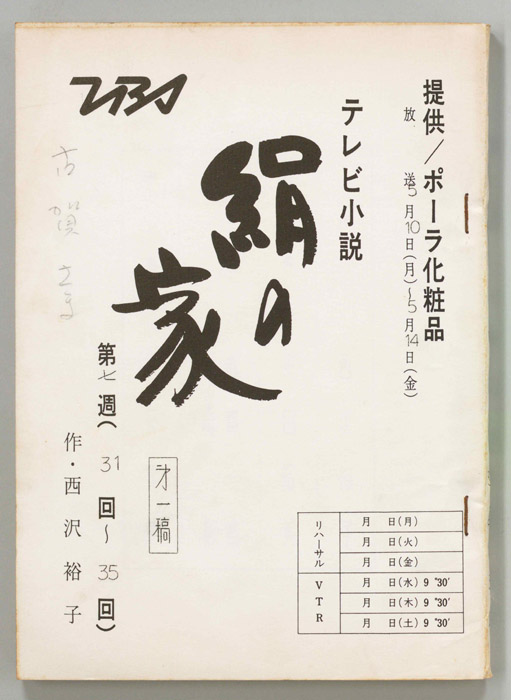 提供/ポーラ化粧品
放送 5月10日(月)~5月14日(金)
テレビ小説
絹の家
TBS
第七週(31回~35回)
作・西沢裕子
第一稿
リハーサル
月 日(月)
月 日(火)
月 日(金)
VTR
月 日(水) 9°30′
月 日(木) 9°30′
月 日(土) 9°30′